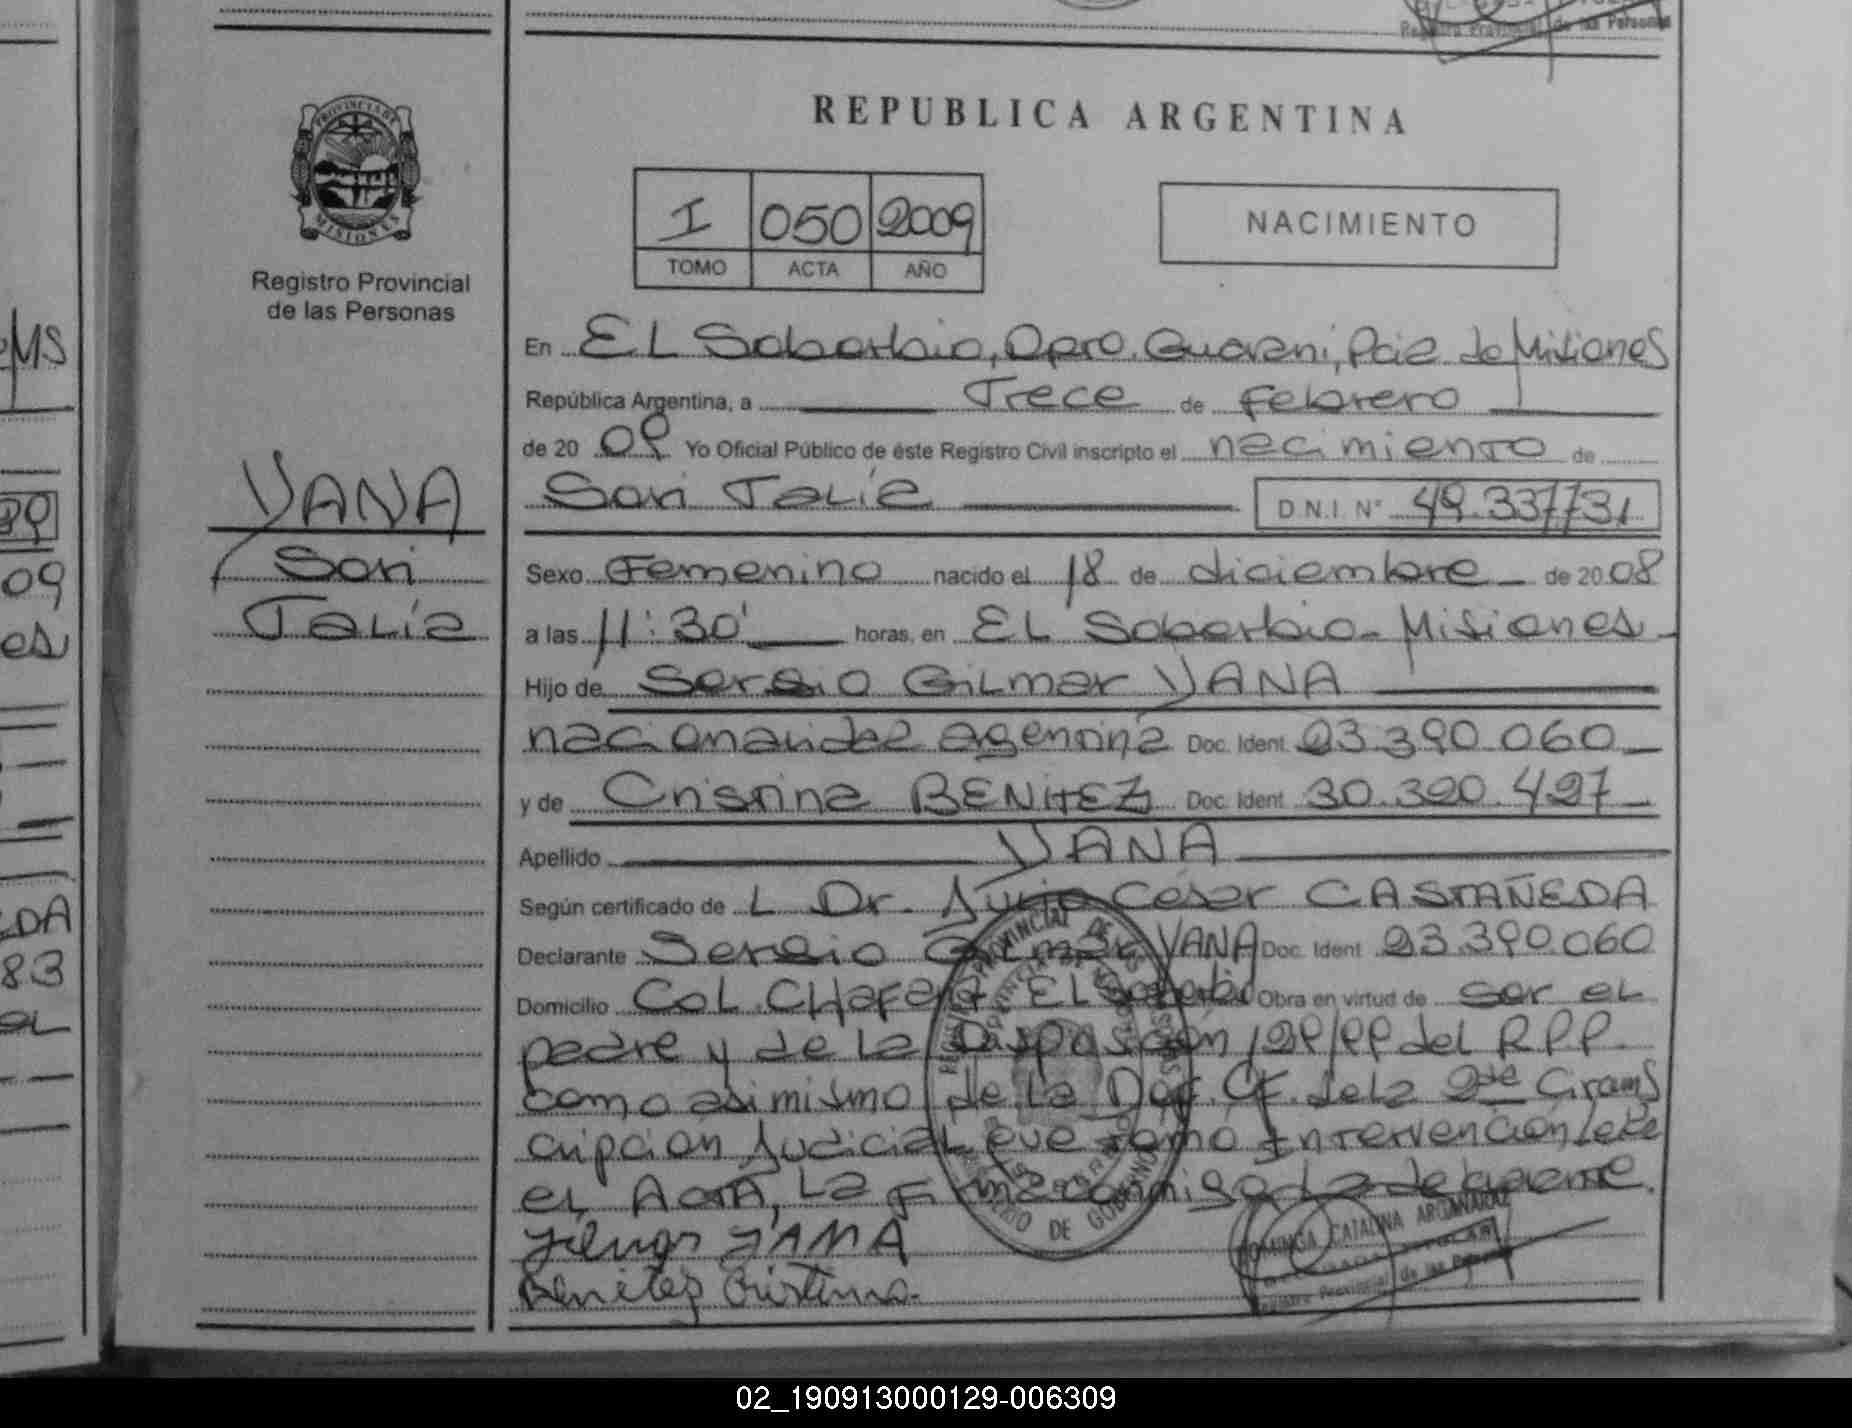 Registro Provincial de las Personas
REPUBLICA ARGENTINA
PROVINCIA DE
MISIONES
Registro Provincial
de las Personas
I 050 2009
TOMO ACTA AÑO
NACIMIENTO
En EL Soberbio, Dpto. Guarani, Pcia de Misiones
República Argentina, a Trece de Febrero
de 20 09 Yo Oficial Público de éste Registro Civil inscripto el nacimiento de
Sori Talía D.N.I. N° 49.337731
YANA
Sori
Talía
Sexo Femenino nacido el 18 de diciembre de 20 08
a las 11:30' horas, en EL Soberbio - Misiones
Hijo de Sergio Gilmar YANA
nacionalidad agentina Doc. Ident. 23.390.060
y de Cristina BENITEZ Doc. Ident. 30.390.497
Apellido YANA
Según certificado de L Dr. Julio César CASTAÑEDA
Declarante Sergio Gilmar YANA Doc. Ident. 23.390.060
Domicilio Col. CHafariz EL Soberbio Obra en virtud de ser el
padre y de la Disposición 129/99 del RPP
como asimismo de la Def. Of. de la 2da Circuns
cripción Judicial que tomó Intervención, leíe
el Acta, la firma conmigo la declarante.
YANA
Benitez Cristina.
DOMINGA CATALINA ARGAÑARAZ
Registro Provincial de las Personas
MS
09
es
DA
83
eL
02_190913000129-006309